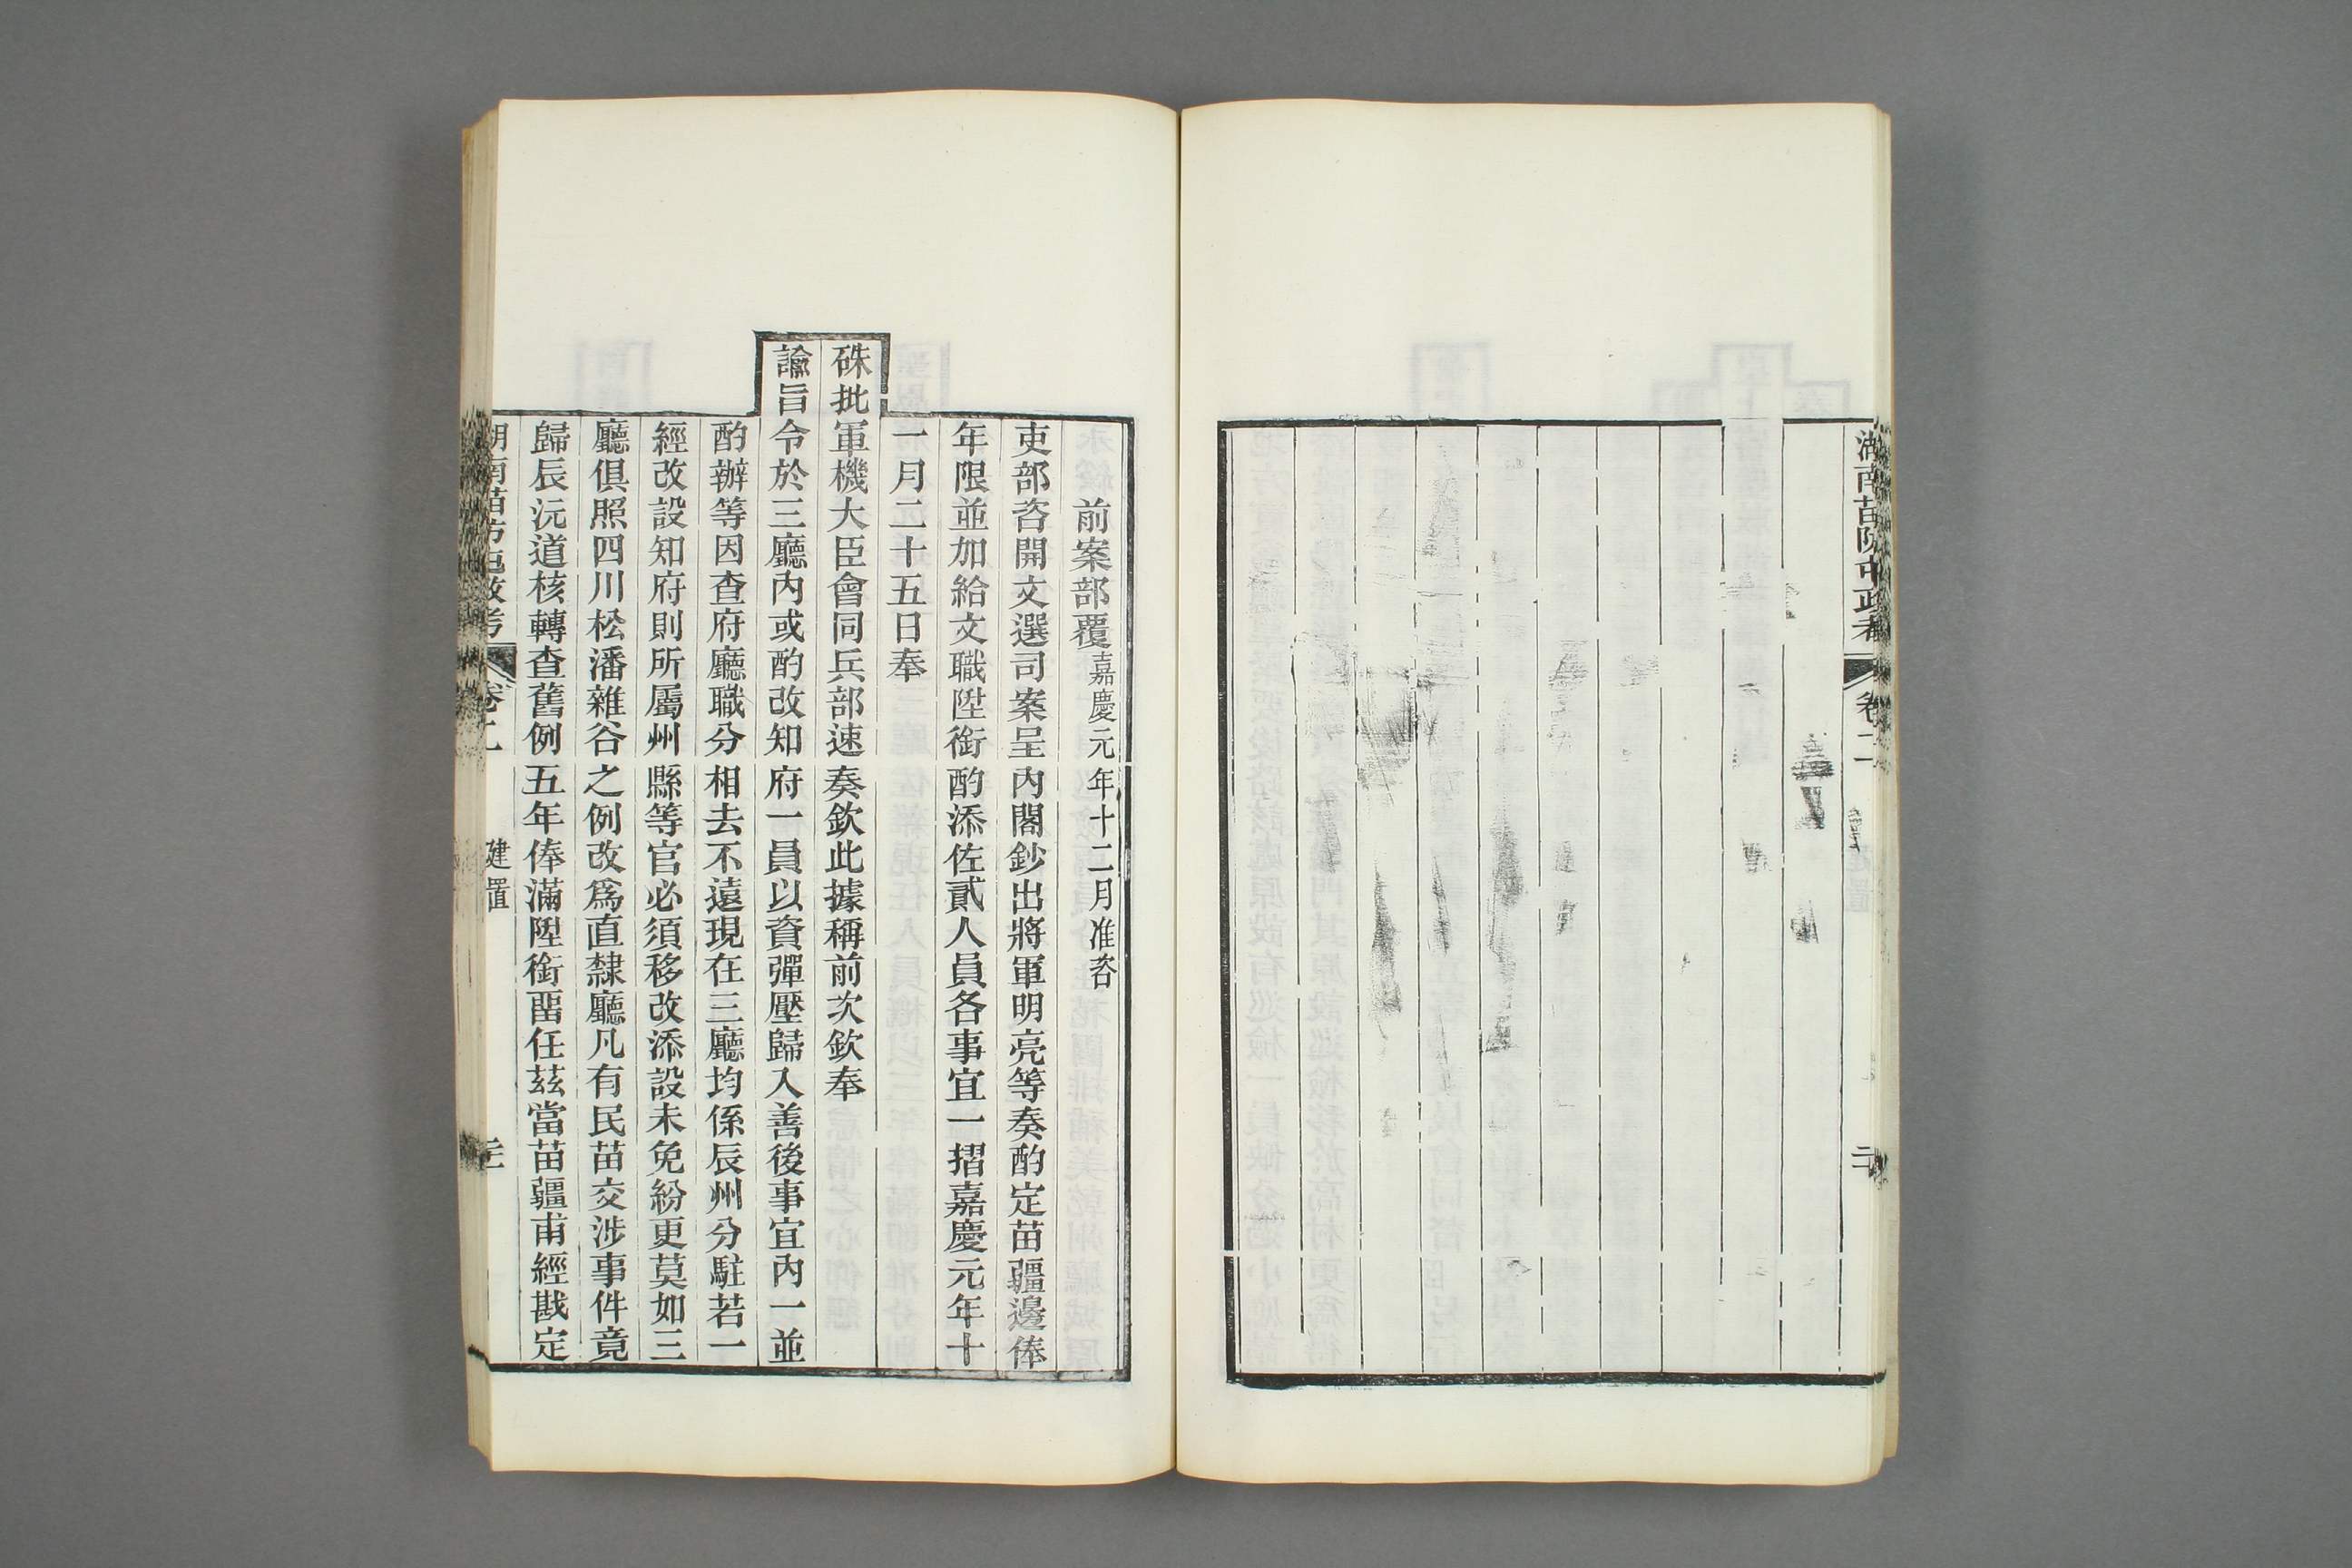 湖南苗防屯政考
卷二
二
前案部覆嘉慶元年十二月准咨
吏部咨開文選司案呈內閣鈔出將軍明亮等奏酌定苗疆邊俸
年限並加給文職陞銜酌添佐貳人員各事宜一摺嘉慶元年十
一月二十五日奉
硃批軍機大臣會同兵部速奏欽此據稱前次欽奉
諭旨令於三廳內或酌改知府一員以資彈壓歸入善後事宜內一並
酌辦等因查府廳職分相去不遠現在三廳均係辰州分駐若一
經改設知府則所屬州縣等官必須移改添設未免紛更莫如三
廳俱照四川松潘雜谷之例改爲直隸廳凡有民苗交涉事件竟
歸辰沅道核轉查舊例五年俸滿陞銜畱任茲當苗疆甫經戡定
湖南苗防屯政考
卷二
建置